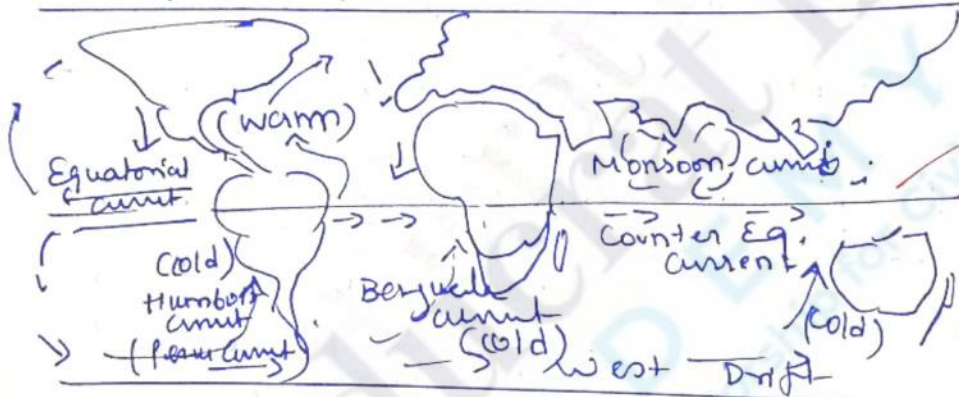 (warm)
Equatorial
current
Monsoon current
Counter Eq.
Current
(cold)
Humbolt
current
(Peru current)
Benguela
current
(cold)
(cold)
West Drift